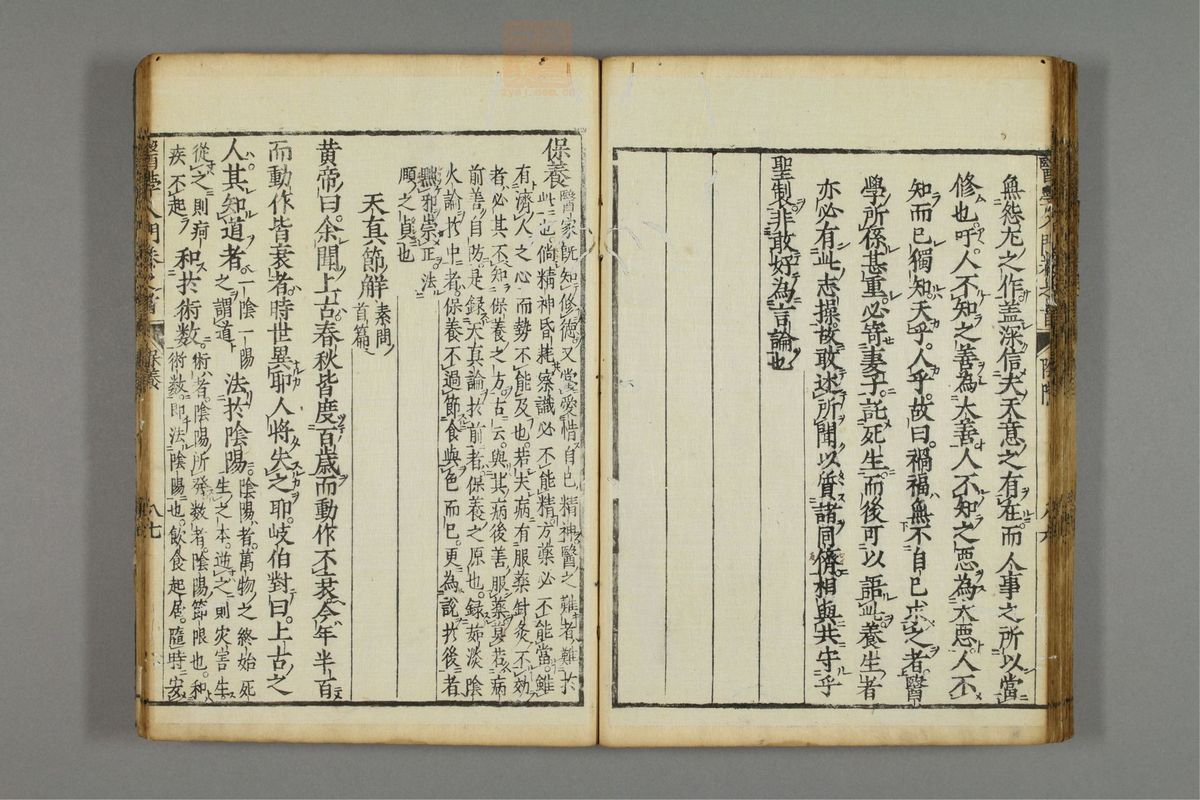 無怨尤之作蓋深信夫天意之有在而人事之所以當
修也吁人不知之善為大善人不知之惡為大惡人不
知而已獨知天乎人乎故曰禍福無不自已求之者醫
學所係甚重必寄妻子託死生而後可以語此養生者
亦必有此志操故敢述所聞以質諸同儕相與共守乎
聖製非敢好為言論也
保養
醫家既知修德又當愛惜自己精神醫之難者難於
此也倘精神昏耗察識必不能精方藥必不能當雖
有濟人之心而勢不能及也若夫病有服藥針灸不効
者必其不知保養之方古云與其病後善服藥莫若病
前善自防是録天真論於前者保養之原也録茹淡陰
火論於中者保養不過節食與色而已更為說於後者
黜邪崇正法
頤之貞也
天真節解
素問
首篇
黄帝曰余聞上古春秋皆度百歲而動作不衰今年半百
而動作皆衰者時世異耶人將失之耶岐伯對曰上古之
人其知道者
一陰一陽
之謂道
法於陰陽
陰陽者萬物之終始死
生之本逆之則灾害生
從之則疴
疾不起
和於術數
術者陰陽所發數者陰陽節限也和
術數即法陰陽也飲食起居隨時安
保養
八七